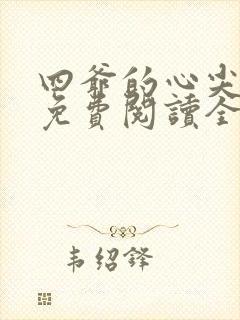 四爺的心尖
免費閱讀全
韦绍鋒